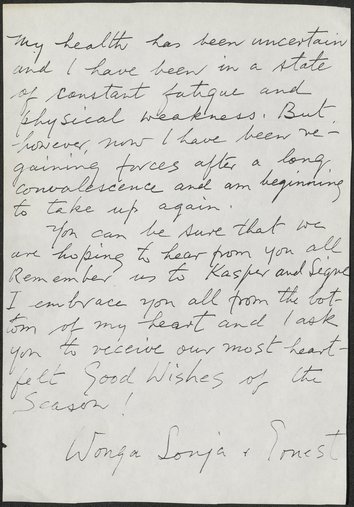 My health has been uncertain
and I have been in a state
of constant fatigue and
physical weakness. But,
however, now I have been re-
gaining forces after a long
convalescence and am beginning
to take up again.
You can be sure that we
are hoping to hear from you all
Remember us to Kasper and Signe
I embrace you all from the bot-
tom of my heart and I ask
you to receive our most heart-
felt Good Wishes of the
Season!
Wonga Sonja + Ernest